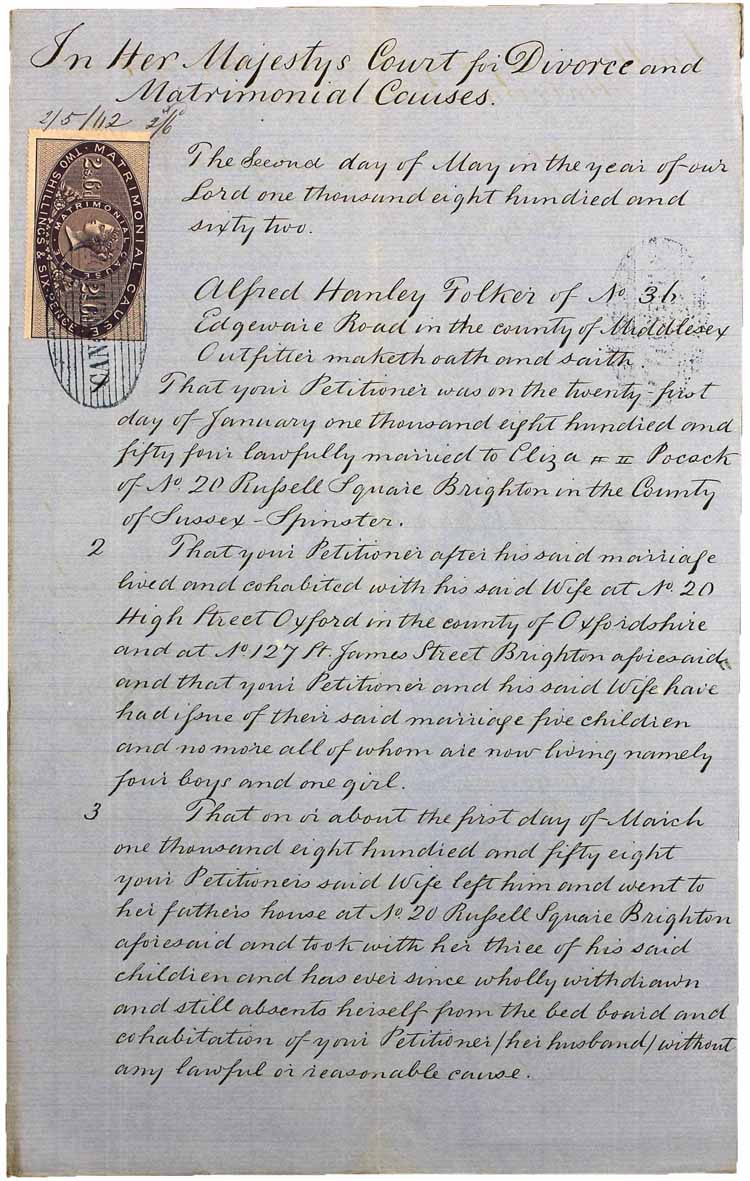 In Her Majestys Court for Divorce and
Matrimonial Causes.
2/5/62 2/6
MATRIMONIAL CAUSE
TWO SHILLINGS & SIX-PENCE
MATRIMONIAL CAUSE FEE
2s 6d
2s 6d
The Second day of May in the year of our
Lord one thousand eight hundred and
sixty two.
Alfred Hanley Folker of No. 3
Edgeware Road in the county of Middlesex
Outfitter maketh oath and saith
That your Petitioner was on the twenty-first
day of January one thousand eight hundred and
fifty four lawfully married to Eliza Pocock
of No. 20 Russell Square Brighton in the County
of Sussex - Spinster.
2 That your Petitioner after his said marriage
lived and cohabited with his said Wife at No. 20
High Street Oxford in the county of Oxfordshire
and at No. 127 St. James Street Brighton aforesaid
and that your Petitioner and his said Wife have
had issue of their said marriage five children
and no more all of whom are now living namely
four boys and one girl.
3 That on or about the first day of March
one thousand eight hundred and fifty eight
your Petitioners said Wife left him and went to
her fathers house at No. 20 Russell Square Brighton
aforesaid and took with her three of his said
children and has ever since wholly withdrawn
and still absents herself from the bed board and
cohabitation of your Petitioner (her husband) without
any lawful or reasonable cause.